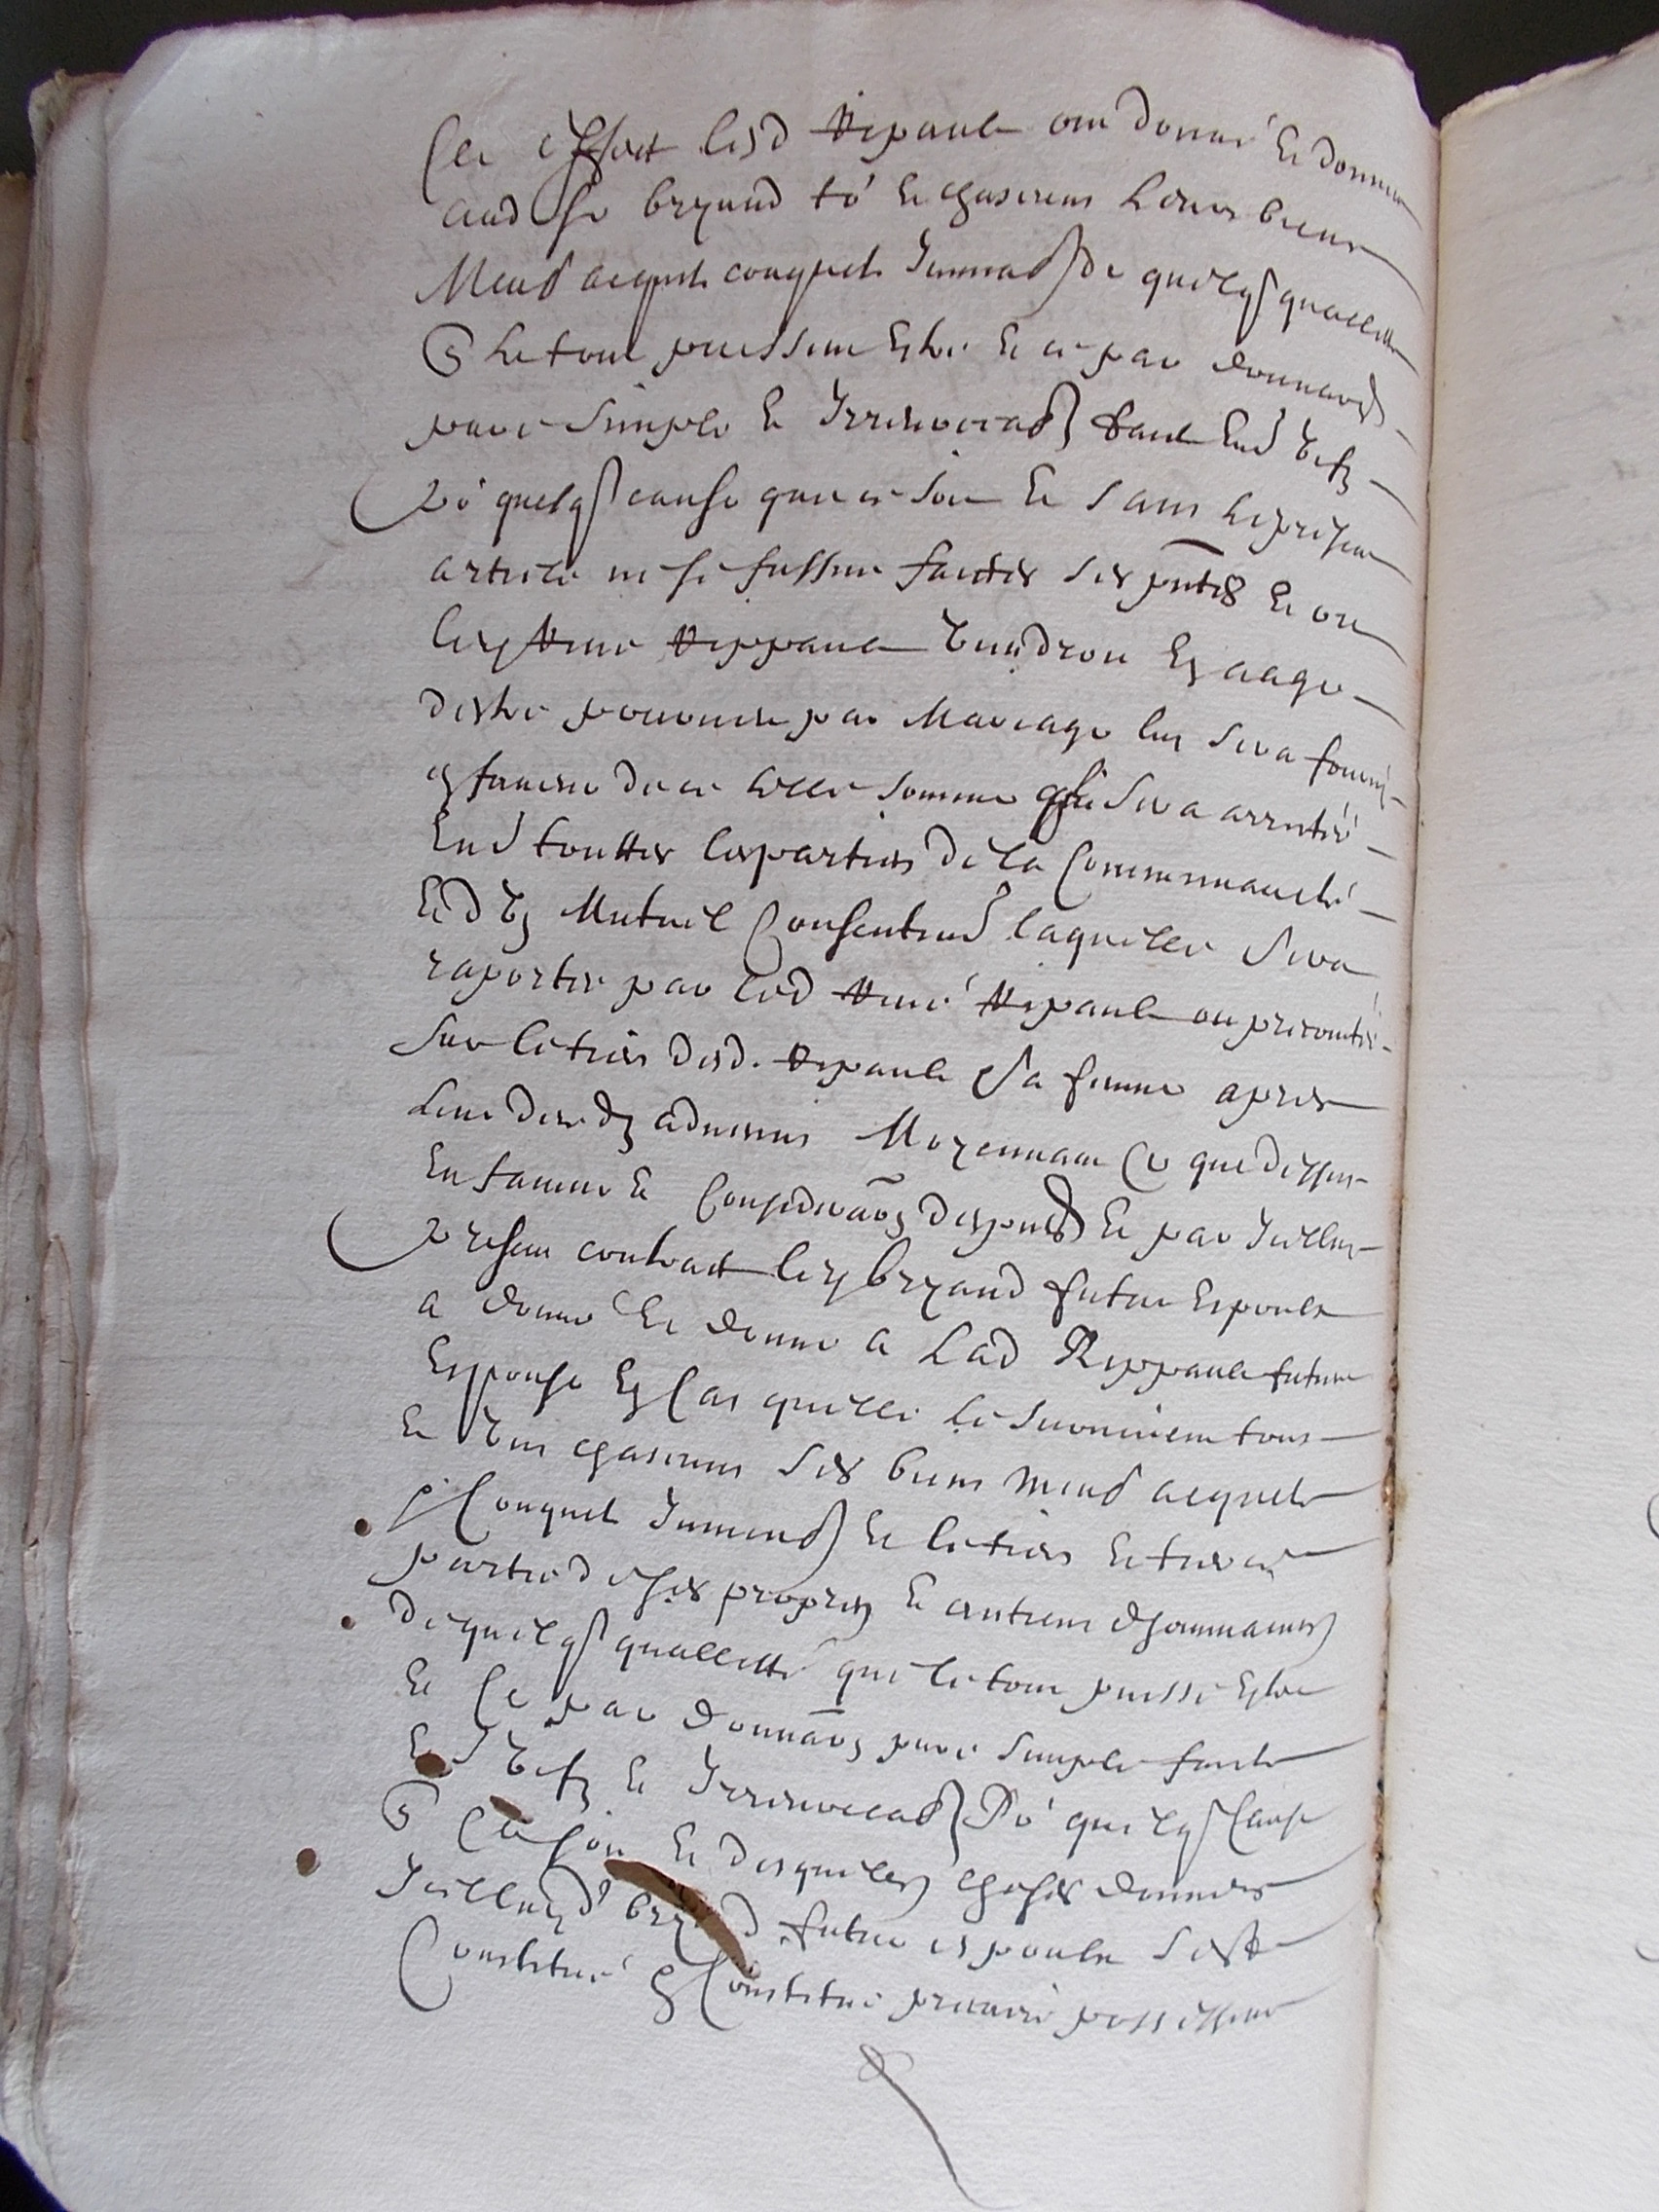 Cet effect lesd Ripault ont donné et donnent
aud sr bryand to' et chascuns leurs biens
Meub acquets conquets Immeub de quelq qualitté
q le tout puissent estre et ce par donnaon
pure simple et Irrevocab faicte Entre vifz
Po' quelq cause que ce soit et sans le present
article ne se fussent faictes ses pntes et ou
led René Rippault viendroit En aage
destre pourveu par Mariage luy sera fourny
en faveur dice telle somme qui sera arrestée
Entre touttes les parties de la Communauté
Et de Mutuel Consentement laquelle sera
raporter par led René Ripault ou precontée
sur le tiers desd. Ripault sa femme apres
leur decedz advenus Moyennant Ce que dessus
En faveur et Consideraon desputes et par Icelluy
present contract led bryand futur Espoulx
a donné et donne a Lad Rippault future
Espouse En Cas quelle le survivient tous
et Uns chascuns ses biens meub acquets
Conquets Immeub et le tiers et tierce
partie de ses propres et antiens dhommaines
de quelq quallitté que le tout puisse Estre
et Ce par donnaon pure simple faicte
Entre vifz et Irrevocab Po' quelq Cause
q Ce soit et desquelles choses donnees
Icelluyd bryand futur espoulx sest
Constitué Constitue precaire possesseur